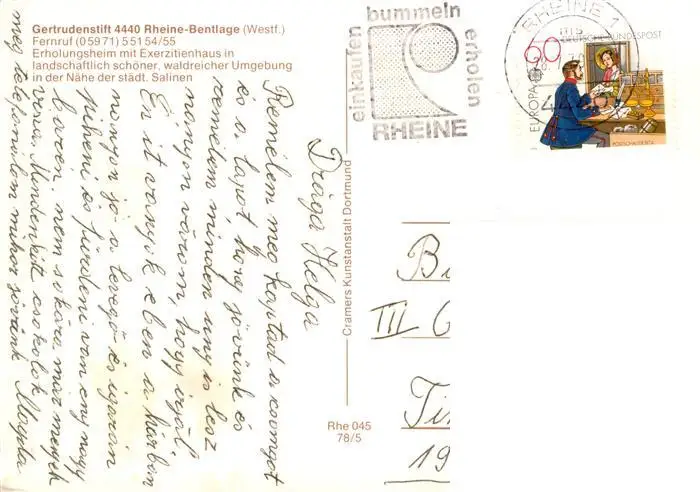 Gertrudenstift 4440 Rheine-Bentlage (Westf.)
Fernruf (05971) 55154/55
Erholungsheim mit Exerzitienhaus in
landschaftlich schöner, waldreicher Umgebung
in der Nähe der städt. Salinen
einkaufen bummeln erholen
RHEINE
RHEINE 1
DEUTSCHE BUNDESPOST
60
EUROPA
POSTSCHALTER
Drága Helga
Remélem meg kaptad a csomagot
és a lapot, hogy jövünk és
remélem minden úgy is lesz
nagyon várom, hogy írjál.
Én itt vagyok eben a házban
nagyon jó a levegő és igazán
piheni és fürdeni van egy nagy
baren. nem sokára már menyek
vissza. Mindenkit csokolok
meg telefonálom mikor jövünk
Cramers Kunstanstalt Dortmund
Rhe 045
78/5
III
19